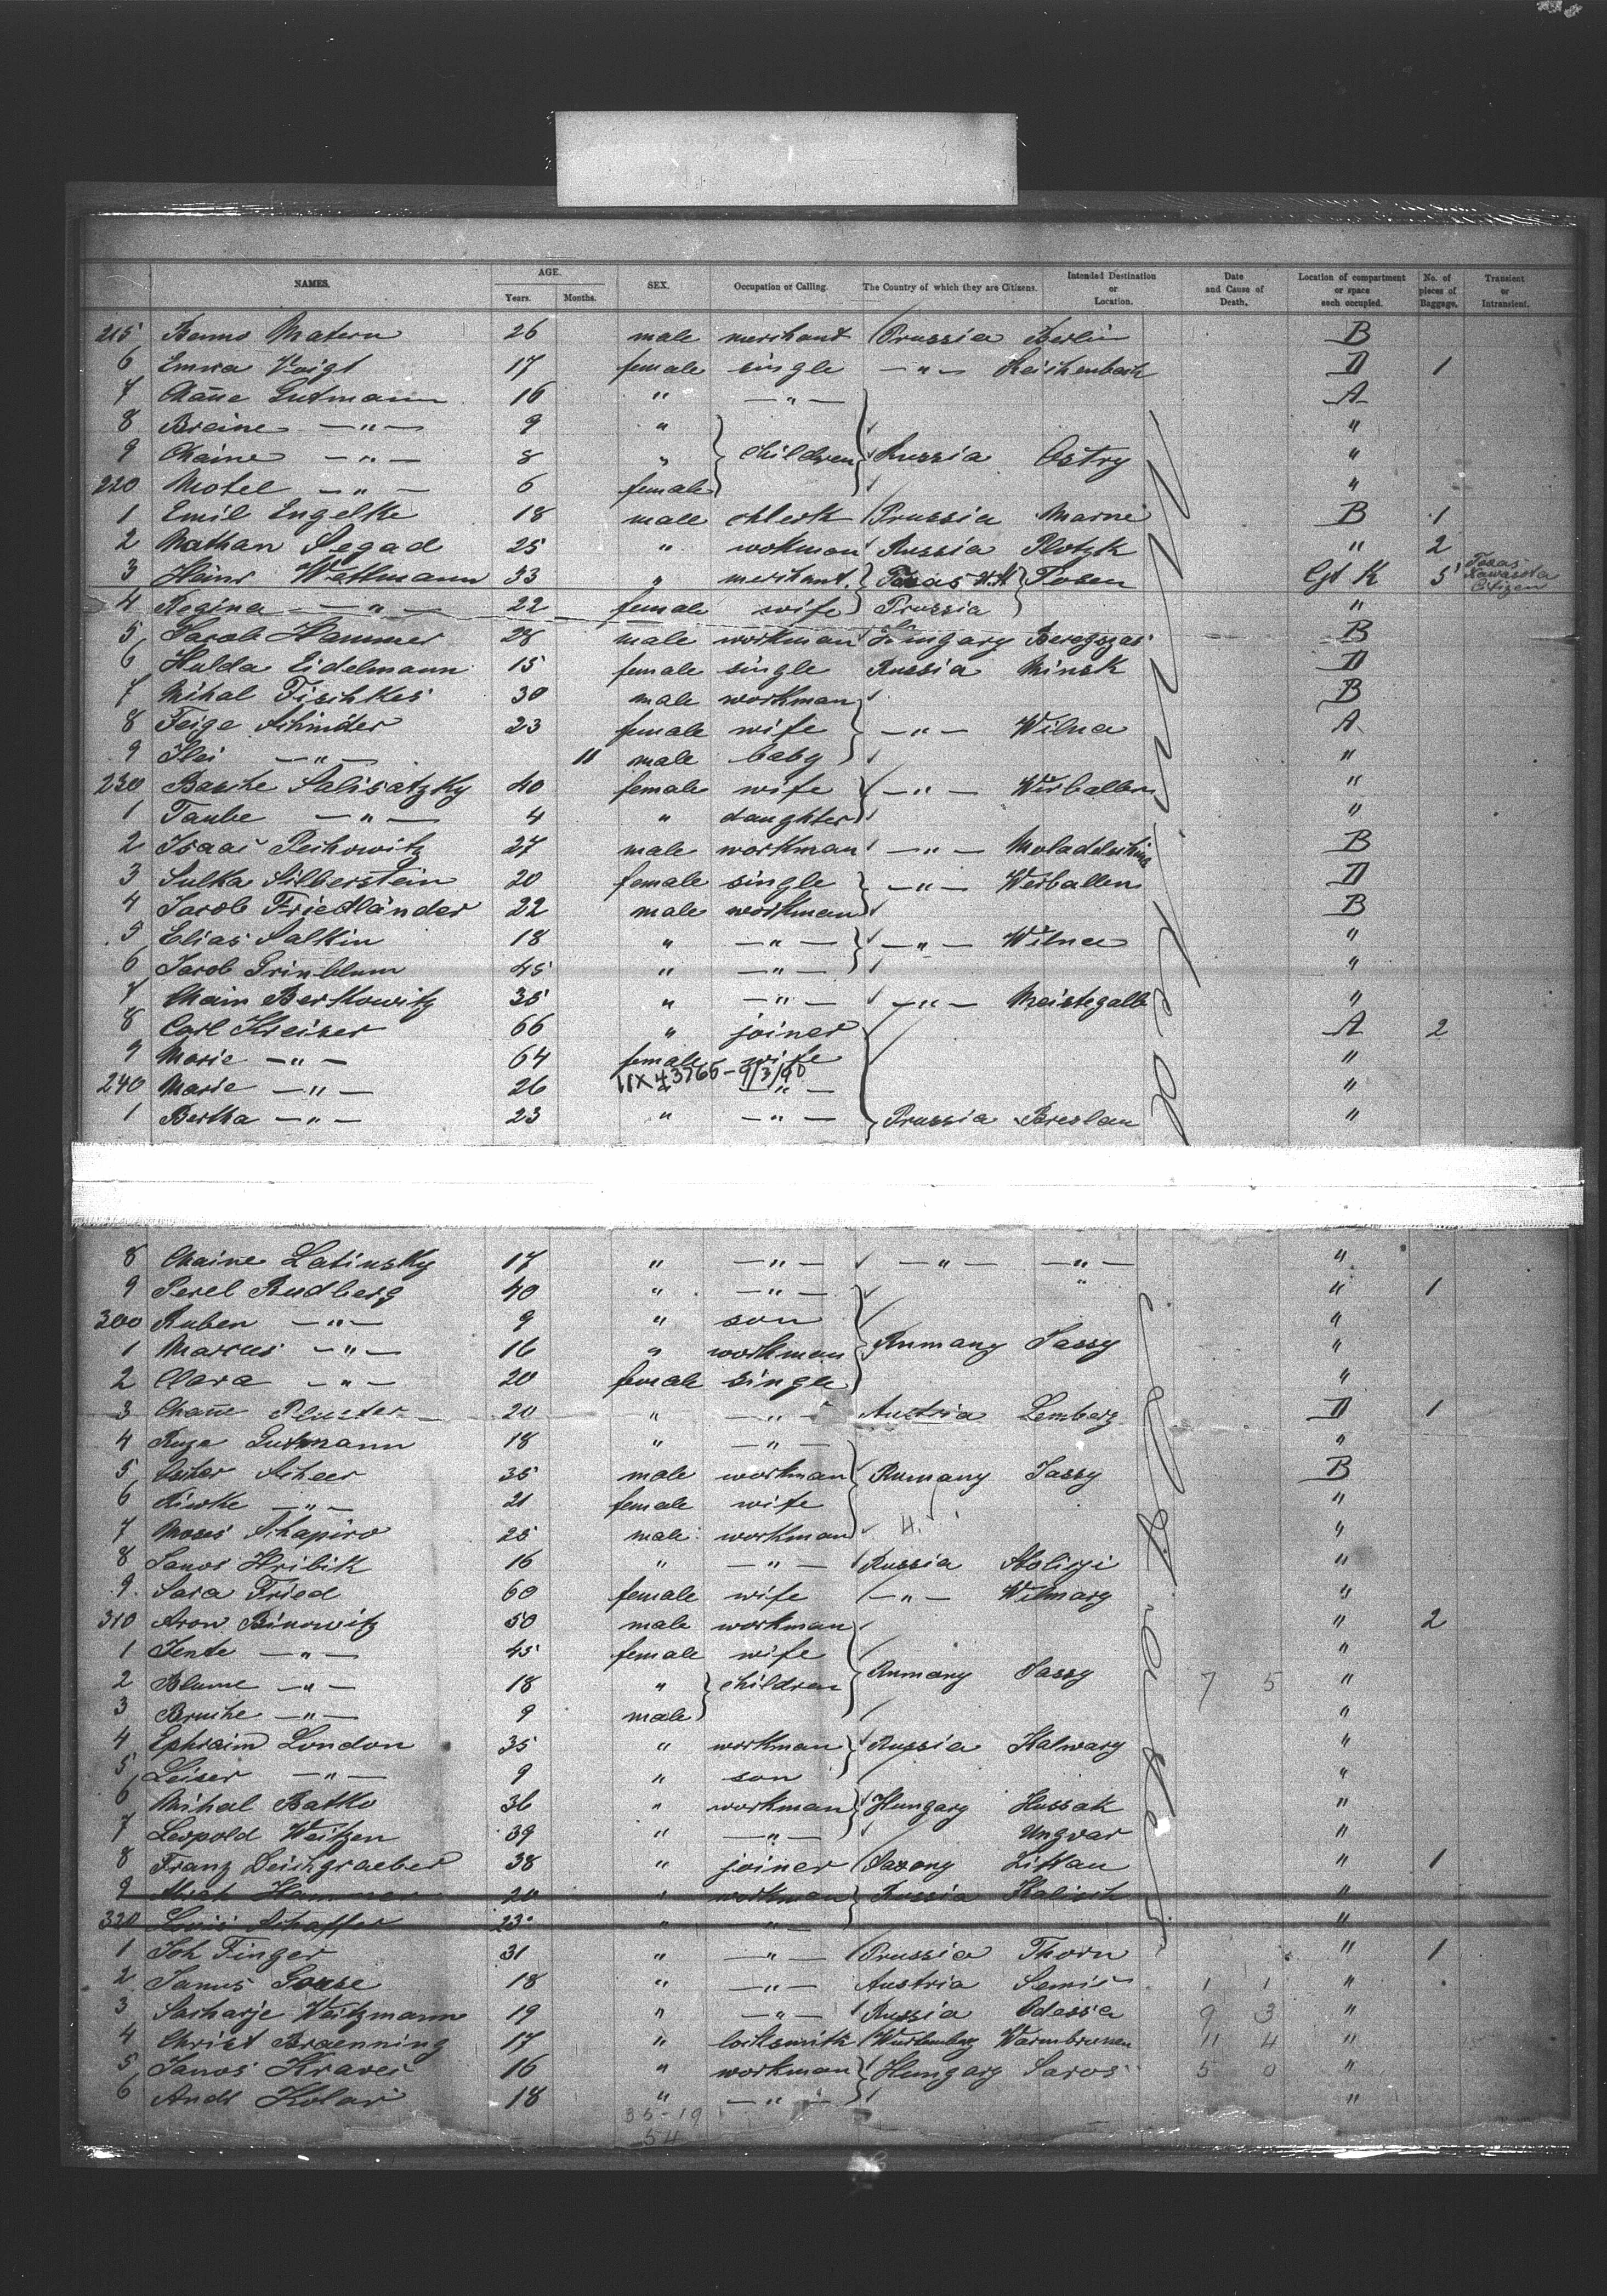 NAMES. AGE. Years. Months. SEX. Occupation or Calling. The Country of which they are Citizens. Intended Destination or Location. Date and Cause of Death. Location of compartment or space each occupied. No. of pieces of Baggage. Transient or Intransient.
215 Benno Matern 26 male merchant Prussia Berlin B
6 Emma Voigt 17 female single — " — Reichenbach D 1
7 Chane Gutmann 16 " — " — A
8 Breine — " — 9 " "
9 Chaine — " — 8 " children Russia Ostry "
220 Motel — " — 6 female "
1 Emil Engelke 18 male Prussia Marne B 1
2 Nathan Segad 25 " workman Russia Plotzk " 2
3 Heinr Wettmann 33 " merchant Texas Posen Cjt K 5 Texas Citizen
4 Regina — " — 22 female wife Prussia "
5 Jacob Hammer 28 male workman Hungary Beregszas B
6 Hulda Eidelmann 15 female single Russia Minsk D
7 Mihal Fischkes 30 male workman B
8 Feige 23 female wife — " — Wilna A
9 — " — 11 male baby "
230 Basche Salisatzky 40 female wife — " — Wirballen "
1 Taube — " — 4 " daughter "
2 Isaac 27 male workman — " — B
3 Sulka Silberstein 20 female single — " — Werballen D
4 Jacob Friedländer 22 male workman B
5 Elias Salkin 18 " — " — — " — Wilna "
6 Jacob Grinblum 45 " — " — "
7 Chaim Berkowitz 35 " — " — — " — Meistegalle "
8 Carl Kreiser 66 " joiner A 2
9 Marie — " — 64 female wife "
11X43765 - 9/3/90
240 Marie — " — 26 " — " — "
1 Bertha — " — 23 " — " — Prussia Breslau "
8 Chaine Latinsky 17 " — " — — " — — " — "
9 Perel Rudberg 40 " — " — " " 1
300 Ruben — " — 9 " son "
1 Marcus — " — 16 " workman Rumany Jassy "
2 Clara — " — 20 female single "
3 Chane 20 " — " — Austria Lemberg D 1
4 Ruza Gutmann 18 " — " — "
5 Ascher 35 male workman Rumany Jassy B
6 Riwke — " — 21 female wife "
7 Moses Schapiro 25 male workman "
8 Janos Hribik 16 " — " — Russia "
9 Sara Fried 60 female wife — " — Wilmarg "
310 Aron Binowitz 50 male workman " 2
1 Jente — " — 45 female wife "
2 Blume — " — 18 " children Rumany Jassy 7 5 "
3 Bruche — " — 9 male "
4 Ephraim London 35 " workman Russia Kalwarg "
5 Leiser — " — 9 " son "
6 Mihal Batko 36 " workman Hungary Hussak "
7 Leopold Weitzen 39 " — " — Ungvar "
8 Franz Deichgraeber 38 " joiner Saxony Zittau " 1
9 Hammer 20 " workman Russia Kalisch "
320 Louis Schaffer 23 " — " — "
1 Joh Finger 31 " — " — Prussia Thorn " 1
2 Janus 18 " — " — Austria 1 1 "
3 Sacharje Weitzmann 19 " — " — Russia Odessa 9 3 "
4 Christ Braenning 17 " locksmith Wurtemberg Warmbrunnen 11 4 "
5 Janos 16 " workman Hungary Saros 5 0 "
6 Andr Kolar 18 " — " — "
35-19
54